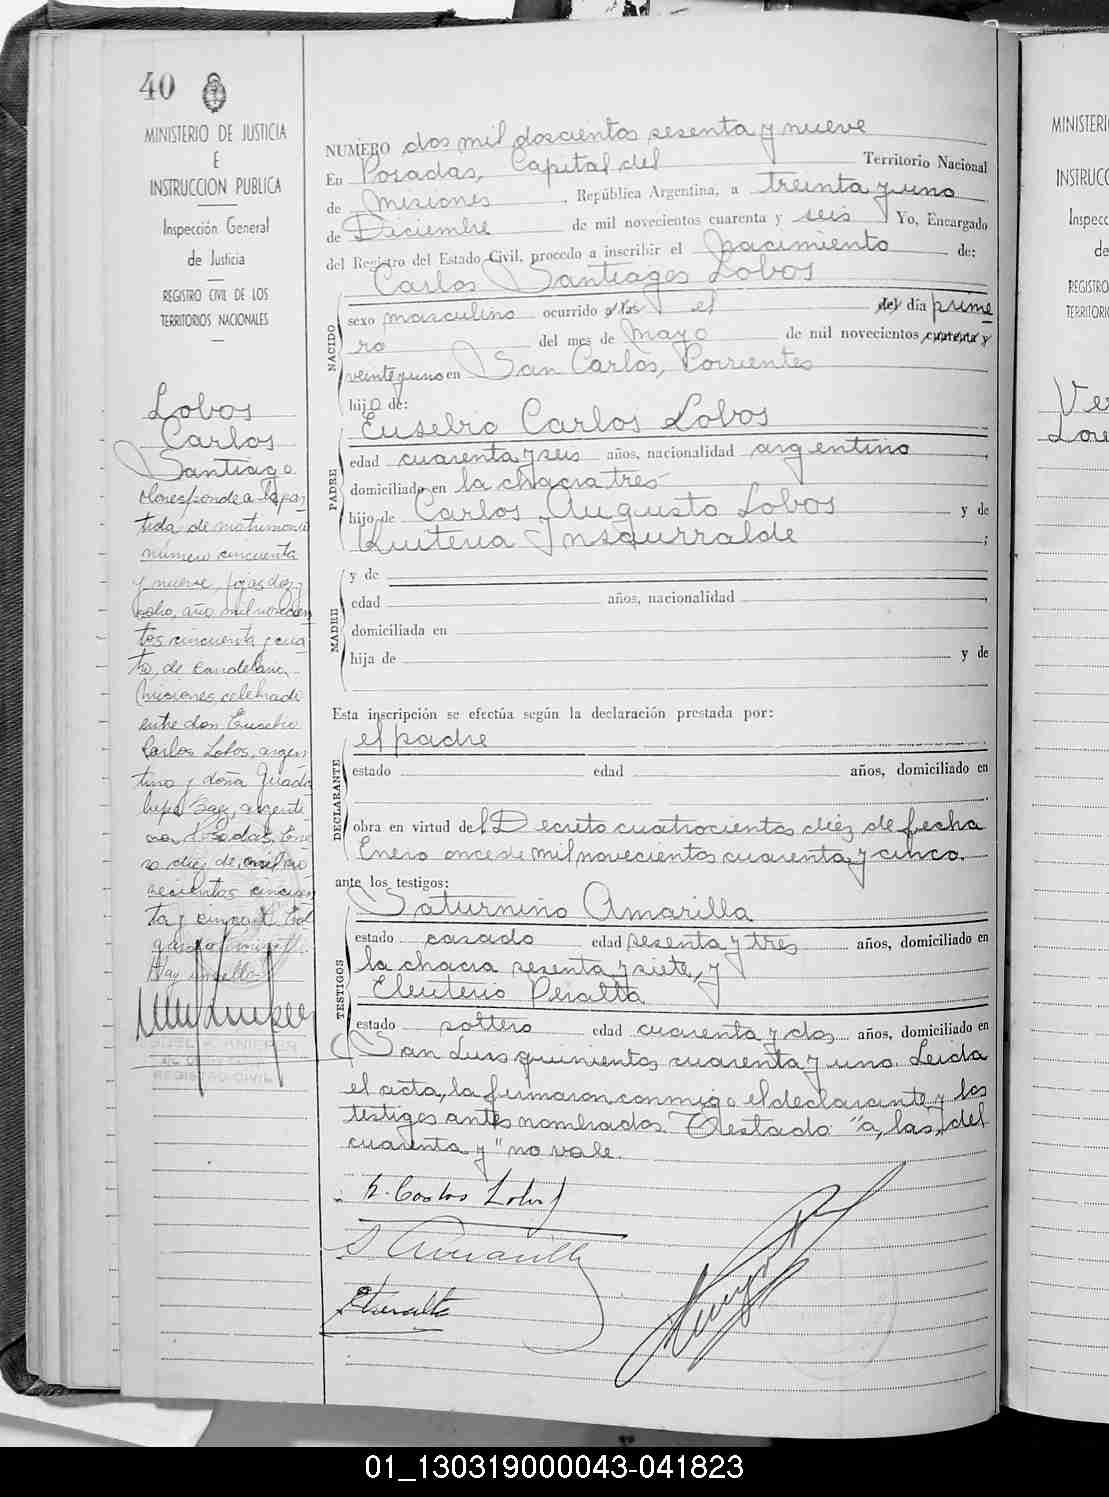 40
MINISTERIO DE JUSTICIA
E
INSTRUCCION PUBLICA
Inspección General
de Justicia
REGISTRO CIVIL DE LOS
TERRITORIOS NACIONALES
Lobos
Carlos
Santiago
Corresponde a la par
tida de matrimonio
número cincuenta
y nueve, fojas diez
ocho, año mil novecien
tos cincuenta y cua
tro, de Candelaria,
Misiones, celebrado
entre don Eusebio
Carlos Lobos, argen
tino y doña Guada
lupe Saez, argenti
na. Posadas, Ene
ro diez de mil no
vecientos cincuen
ta y cinco.
Hay un sello
REGISTRO CIVIL
NUMERO dos mil doscientos sesenta y nueve
En Posadas, Capital del Territorio Nacional
de Misiones, República Argentina, a treinta y uno
de Diciembre de mil novecientos cuarenta y seis Yo, Encargado
del Registro del Estado Civil, procedo a inscribir el nacimiento de:
Carlos Santiagos Lobos
NACIDO
sexo masculino ocurrido a las el del día prime
ro del mes de Mayo de mil novecientos cuarenta y
veinte y uno en San Carlos, Corrientes
hijo de:
PADRE
Eusebio Carlos Lobos
edad cuarenta y seis años, nacionalidad argentino
domiciliado en la chacra tres
hijo de Carlos Augusto Lobos y de
Quiteria Insaurralde;
MADRE
y de
edad años, nacionalidad
domiciliada en
hija de y de
Esta inscripción se efectúa según la declaración prestada por:
DECLARANTE
el padre
estado edad años, domiciliado en
obra en virtud del Decreto cuatrocientos diez de fecha
Enero once de mil novecientos cuarenta y cinco.
ante los testigos:
TESTIGOS
Saturnino Amarilla
estado casado edad sesenta y tres años, domiciliado en
la chacra sesenta y siete, y
Eleuterio Peralta
estado soltero edad cuarenta y dos años, domiciliado en
San Luis quinientos cuarenta y uno. Leida
el acta, la firmaron conmigo el declarante y los
testigos antes nombrados. Testado "a, las, del
cuarenta y" no vale.
E. Carlos Lobos
S Amarilla
E Peralta
MINISTERI
INSTRUCC
Inspecc
de
REGISTRO
TERRITORI
Ver
Lore
01_130319000043-041823